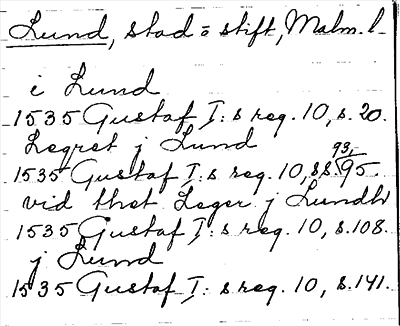 Lund, stad o stift, Malm. l.
i Lund
1535 Gustaf I:s reg. 10, s. 20.
Legret j Lund
1535 Gustaf I:s reg. 10, ss. 93, 95
vid thet Leger j Lundh
1535 Gustaf I:s reg. 10, s. 108.
j Lund
1535 Gustaf I:s reg. 10, s. 141.